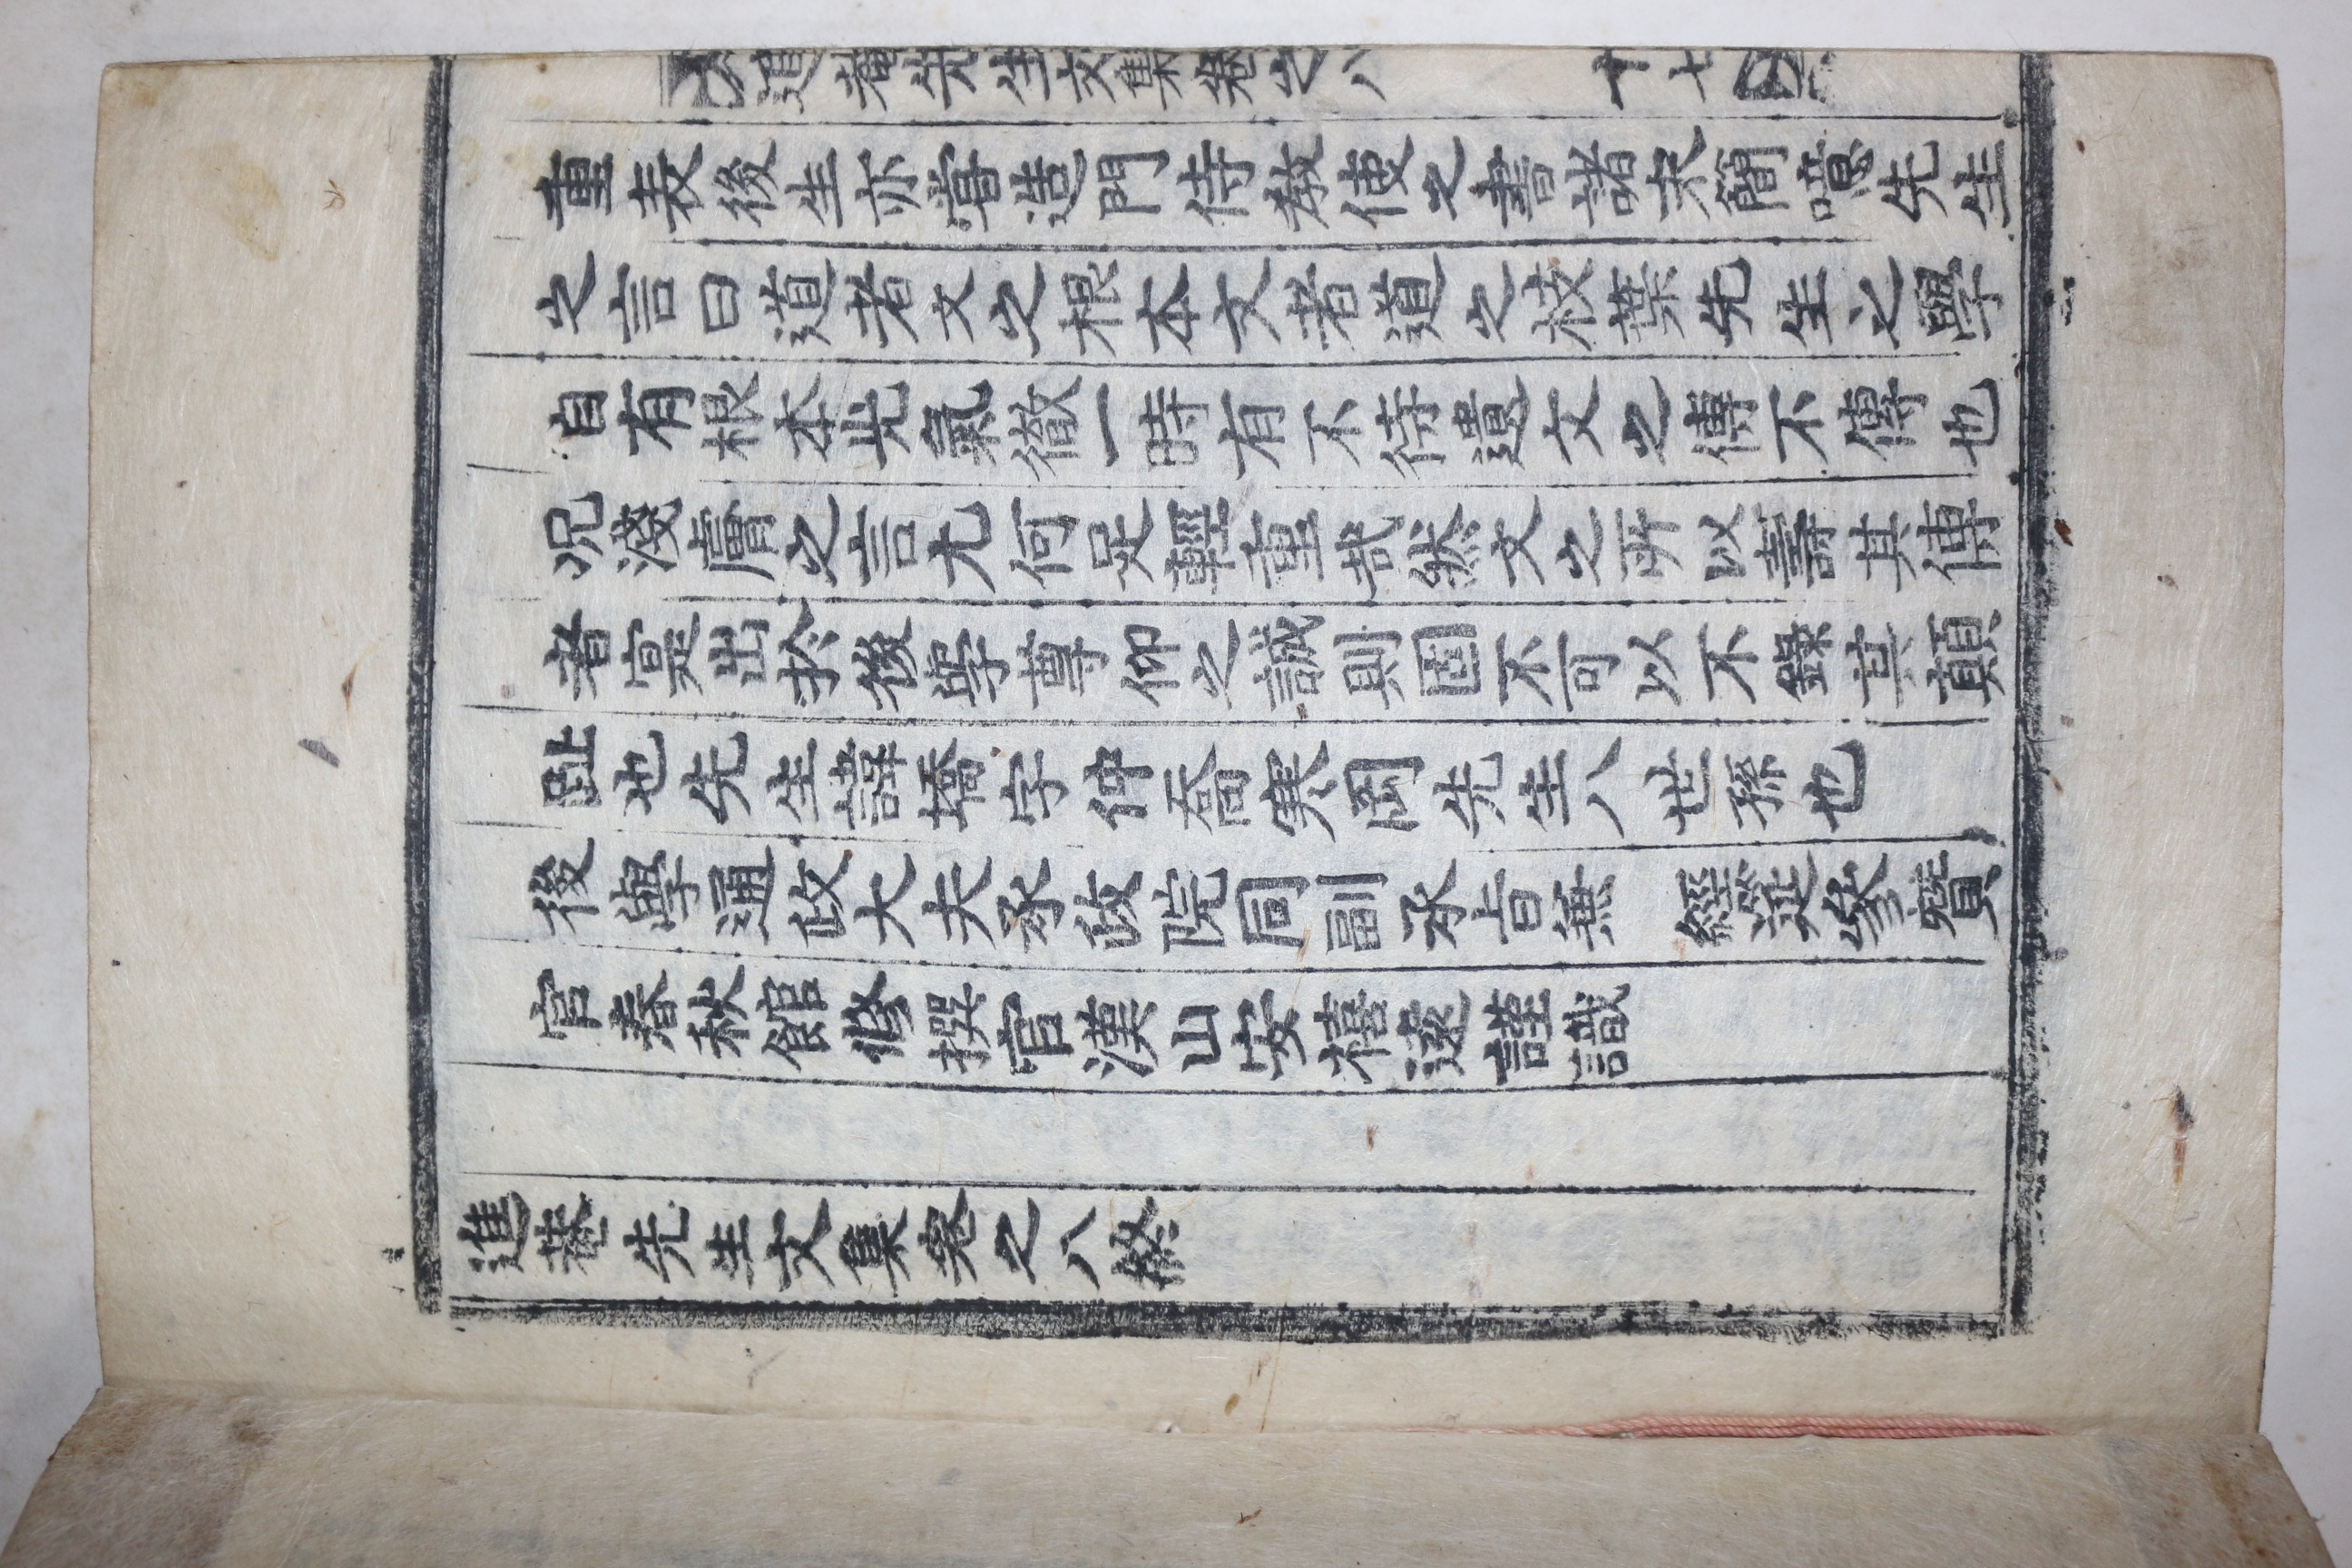 進菴先生文集卷之八 十七
重表後生亦嘗造門侍敎使之書諸末簡噫先生
之言曰道者文之根本文者道之枝葉先生之學
自有根本光氣徹一時有不待遺文之傳不傳也
况淺膚之言尤何足輕重哉然文之所以壽其傳
者寔出於後學尊仰之誠則固不可以不錄其顚
趾也先生諱墧字仲喬寒岡先生八世孫也
後學通政大夫承政院同副承旨兼 經筵參贊
官春秋館修撰官漢山安禧遠謹識
進菴先生文集卷之八終